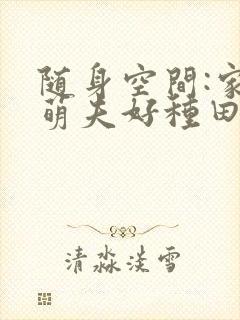 随身空間:家有
萌夫好種田
清淼淡雪